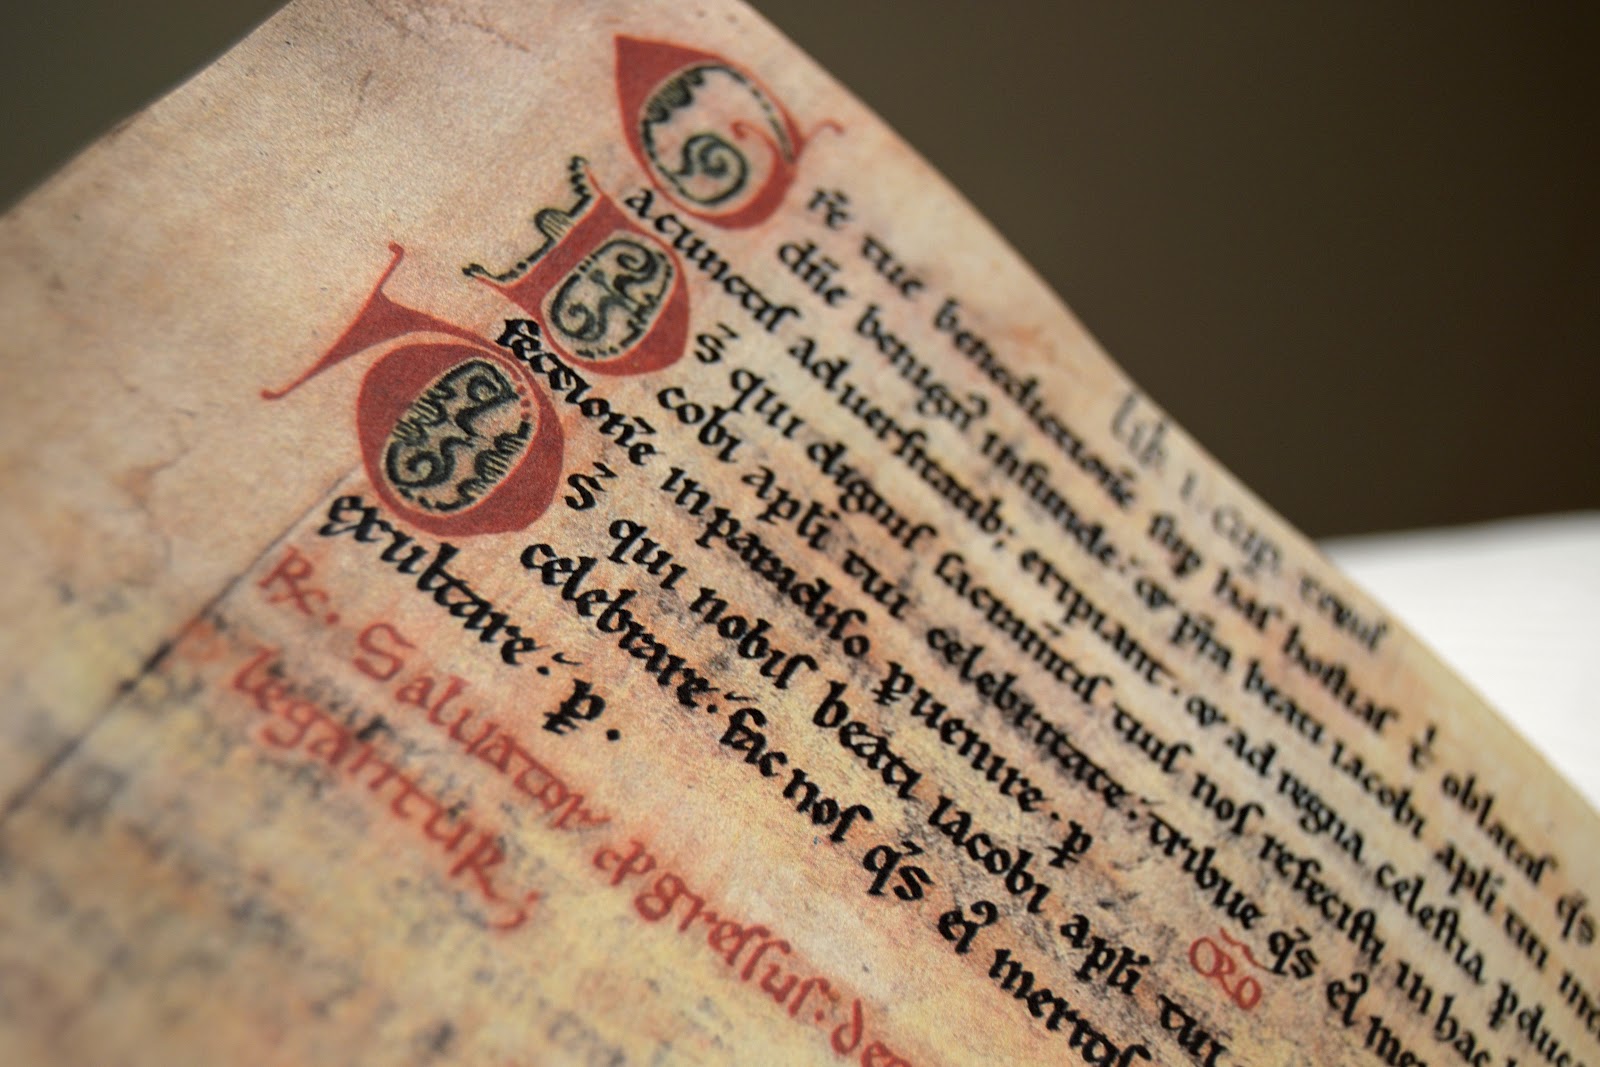 lib. i. cap
Grē tue benedictionē ſup haſ hoſtiaſ ł oblataſ q̄s
dn̄e benign⁹ infunde: beati iacobi apl̄i tui
a cunctiſ aduerſitatib; eripiant. & ad regna celeſtia ꝑduc
Ds̄ qui digniſ ſacram̄tiſ tuiſ noſ refeciſti in hac
cobi apl̄i tui celebritate: tribue q̄s ei⁹ me
fectionē in paradiſo ꝑuenire. ꝑ Oro
Ds̄ qui nobiſ beati iacobi apl̄i tui
celebrare: fac noſ q̄s ei⁹ meritiſ
exultare. ꝑ.
R͞x. Saluator ꝓgreſſuſ. de
legantur;